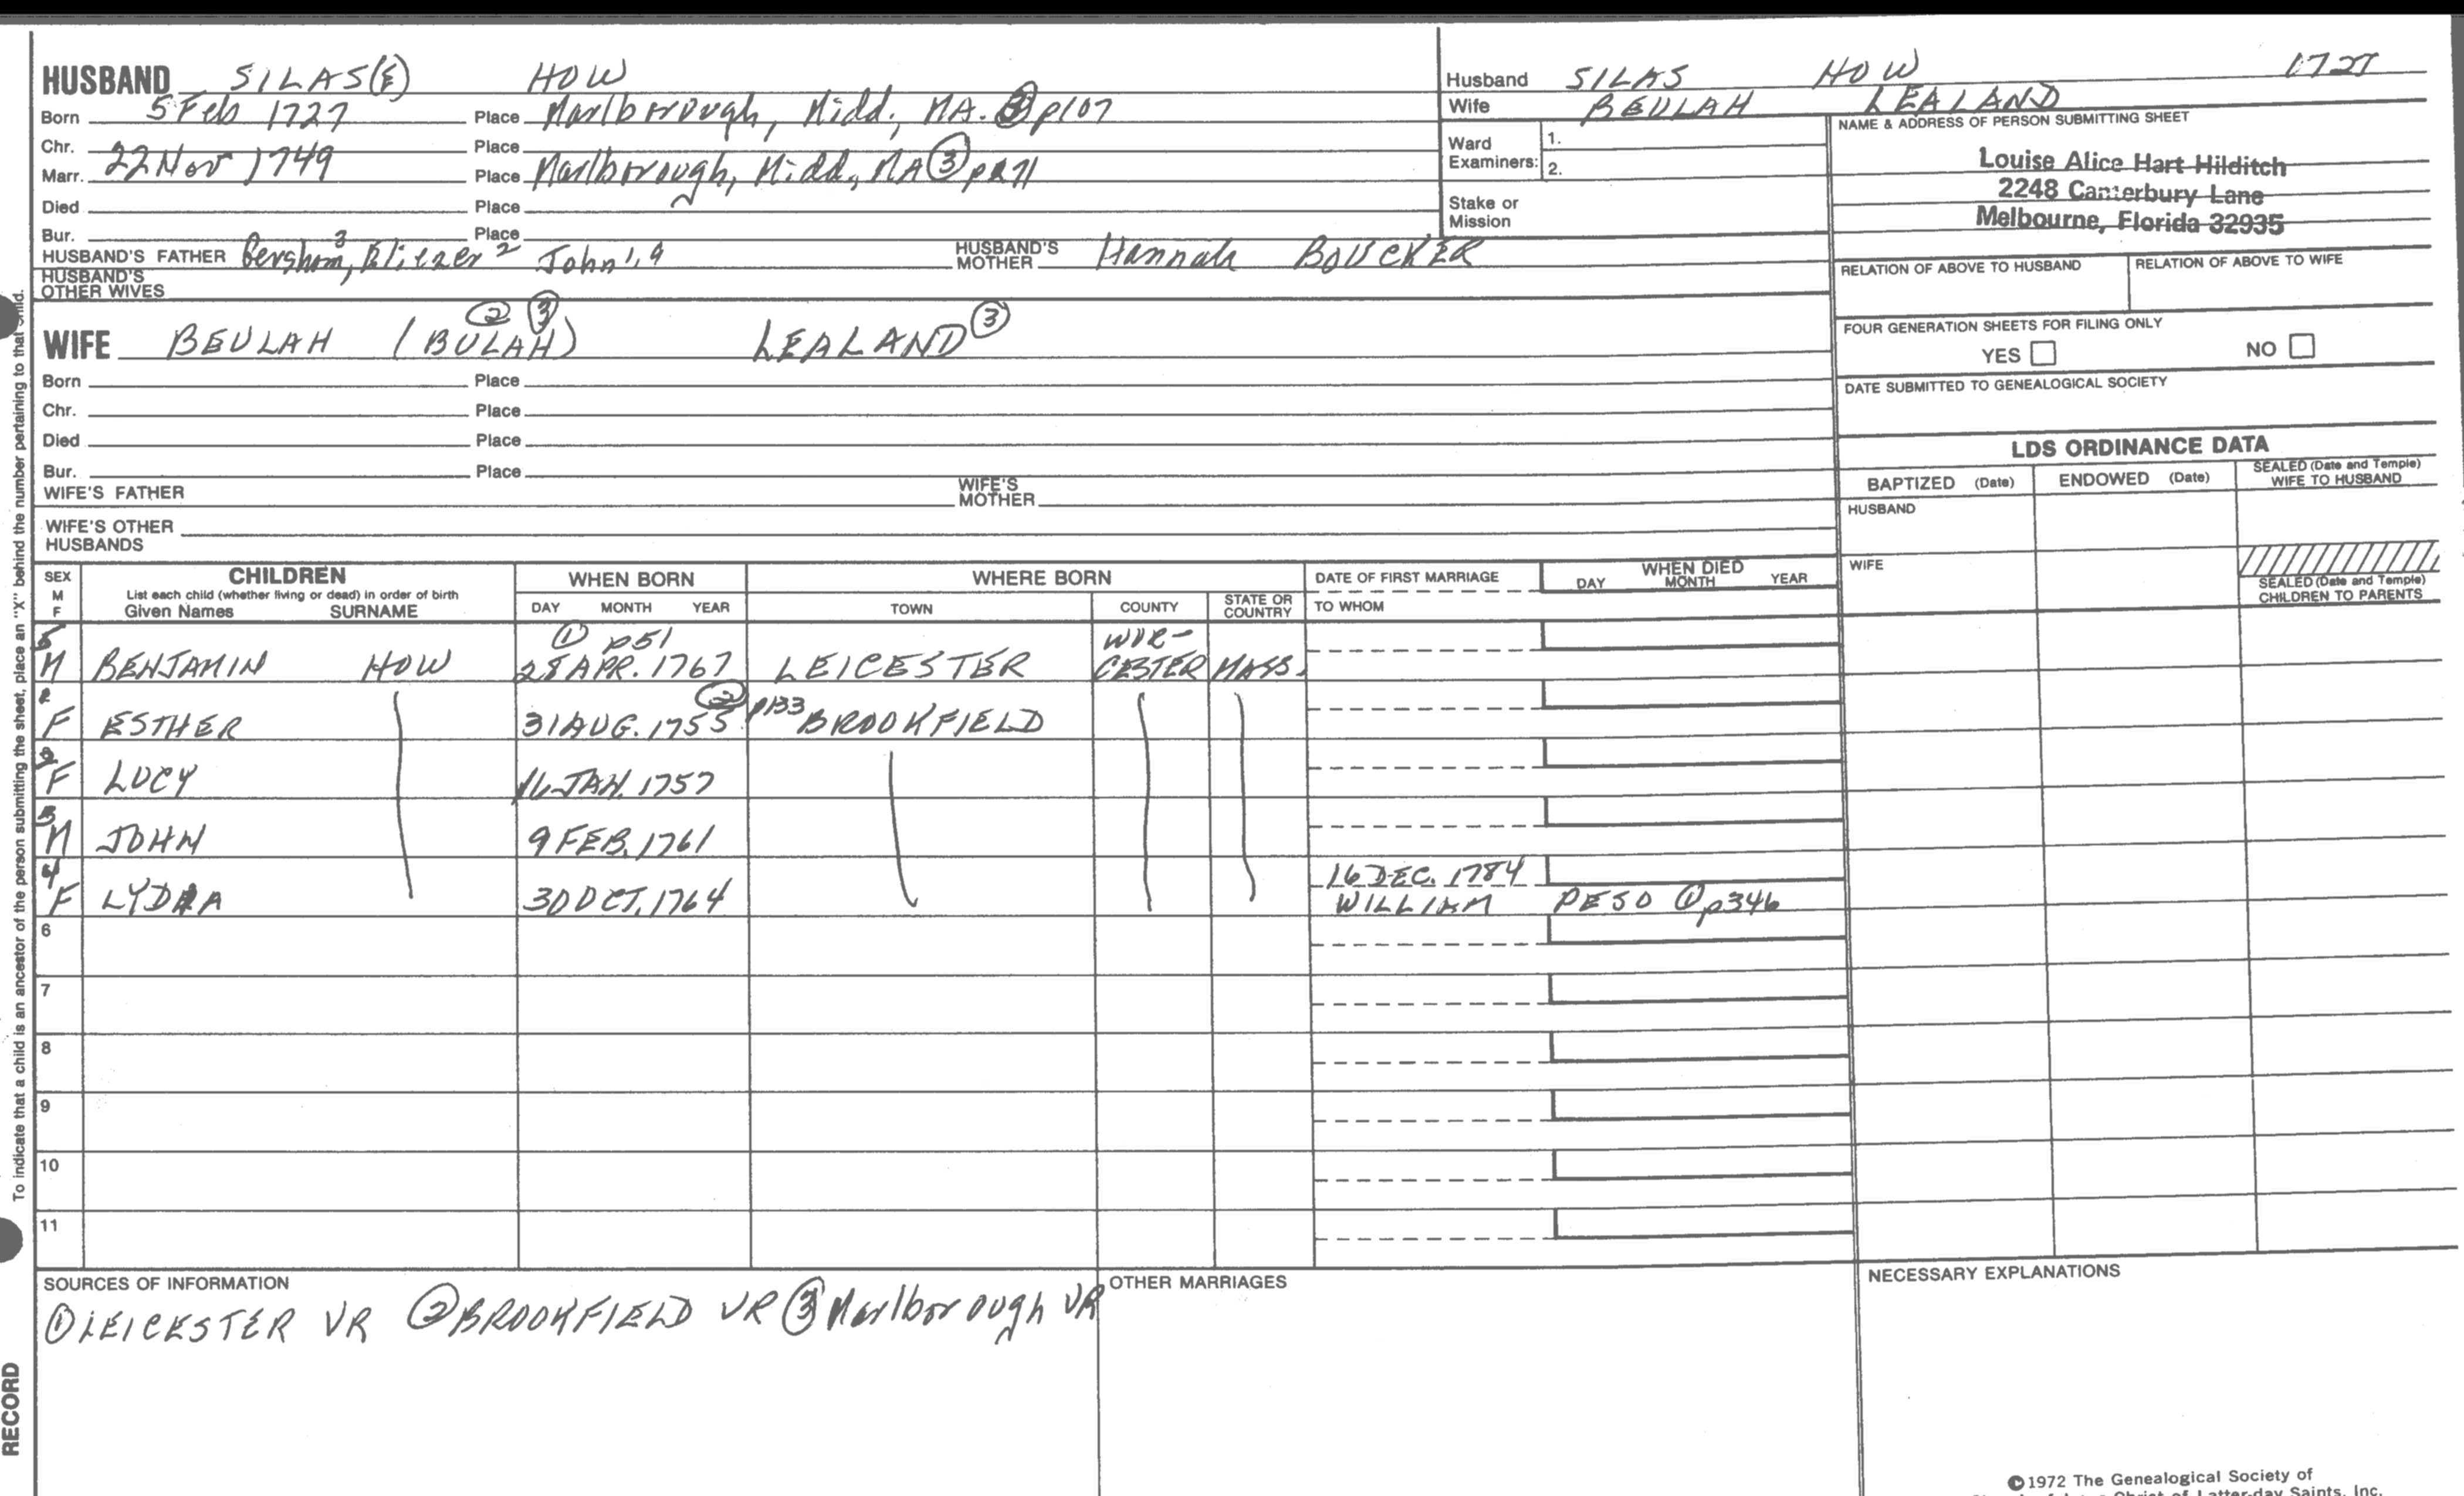 HUSBAND SILAS(E) HOW
Born 5 Feb 1727 Place Marlborough, Midd., MA. ③ p107
Chr. Place
Marr. 22 Nov 1749 Place Marlborough, Midd., MA ③
Died Place
Bur. Place
HUSBAND'S FATHER Gershom,³ Eliezer² John¹, HUSBAND'S MOTHER Hannah BOUCKER
HUSBAND'S OTHER WIVES
② ③
WIFE BEULAH (BULAH) LEALAND ③
Born Place
Chr. Place
Died Place
Bur. Place
WIFE'S FATHER WIFE'S MOTHER
WIFE'S OTHER HUSBANDS
Husband SILAS HOW 1727
Wife BEULAH LEALAND
Ward Examiners: 1.
2.
Stake or Mission
NAME & ADDRESS OF PERSON SUBMITTING SHEET
Louise Alice Hart Hilditch
2248 Canterbury Lane
Melbourne, Florida 32935
RELATION OF ABOVE TO HUSBAND RELATION OF ABOVE TO WIFE
FOUR GENERATION SHEETS FOR FILING ONLY
YES NO
DATE SUBMITTED TO GENEALOGICAL SOCIETY
LDS ORDINANCE DATA
BAPTIZED (Date) ENDOWED (Date) SEALED (Date and Temple) WIFE TO HUSBAND
HUSBAND
WIFE
SEALED (Date and Temple) CHILDREN TO PARENTS
To indicate that a child is an ancestor of the person submitting the sheet, place an "X" behind the number pertaining to that child.
SEX M F CHILDREN WHEN BORN WHERE BORN DATE OF FIRST MARRIAGE WHEN DIED
List each child (whether living or dead) in order of birth
Given Names SURNAME DAY MONTH YEAR TOWN COUNTY STATE OR COUNTRY TO WHOM DAY MONTH YEAR
5 ① p51 WOR-
M BENJAMIN HOW 28 APR. 1767 LEICESTER CESTER MASS.
② p133
F ESTHER 31 AUG. 1755 BROOKFIELD
F LUCY 16 JAN. 1757
M JOHN 9 FEB. 1761
4 16 DEC. 1784
F LYDIA 30 OCT. 1764 WILLIAM PESO ① p346
6
7
8
9
10
11
SOURCES OF INFORMATION
① LEICESTER VR ② BROOKFIELD VR ③ Marlborough VR
OTHER MARRIAGES
NECESSARY EXPLANATIONS
RECORD
©1972 The Genealogical Society of
Latter-day Saints, Inc.